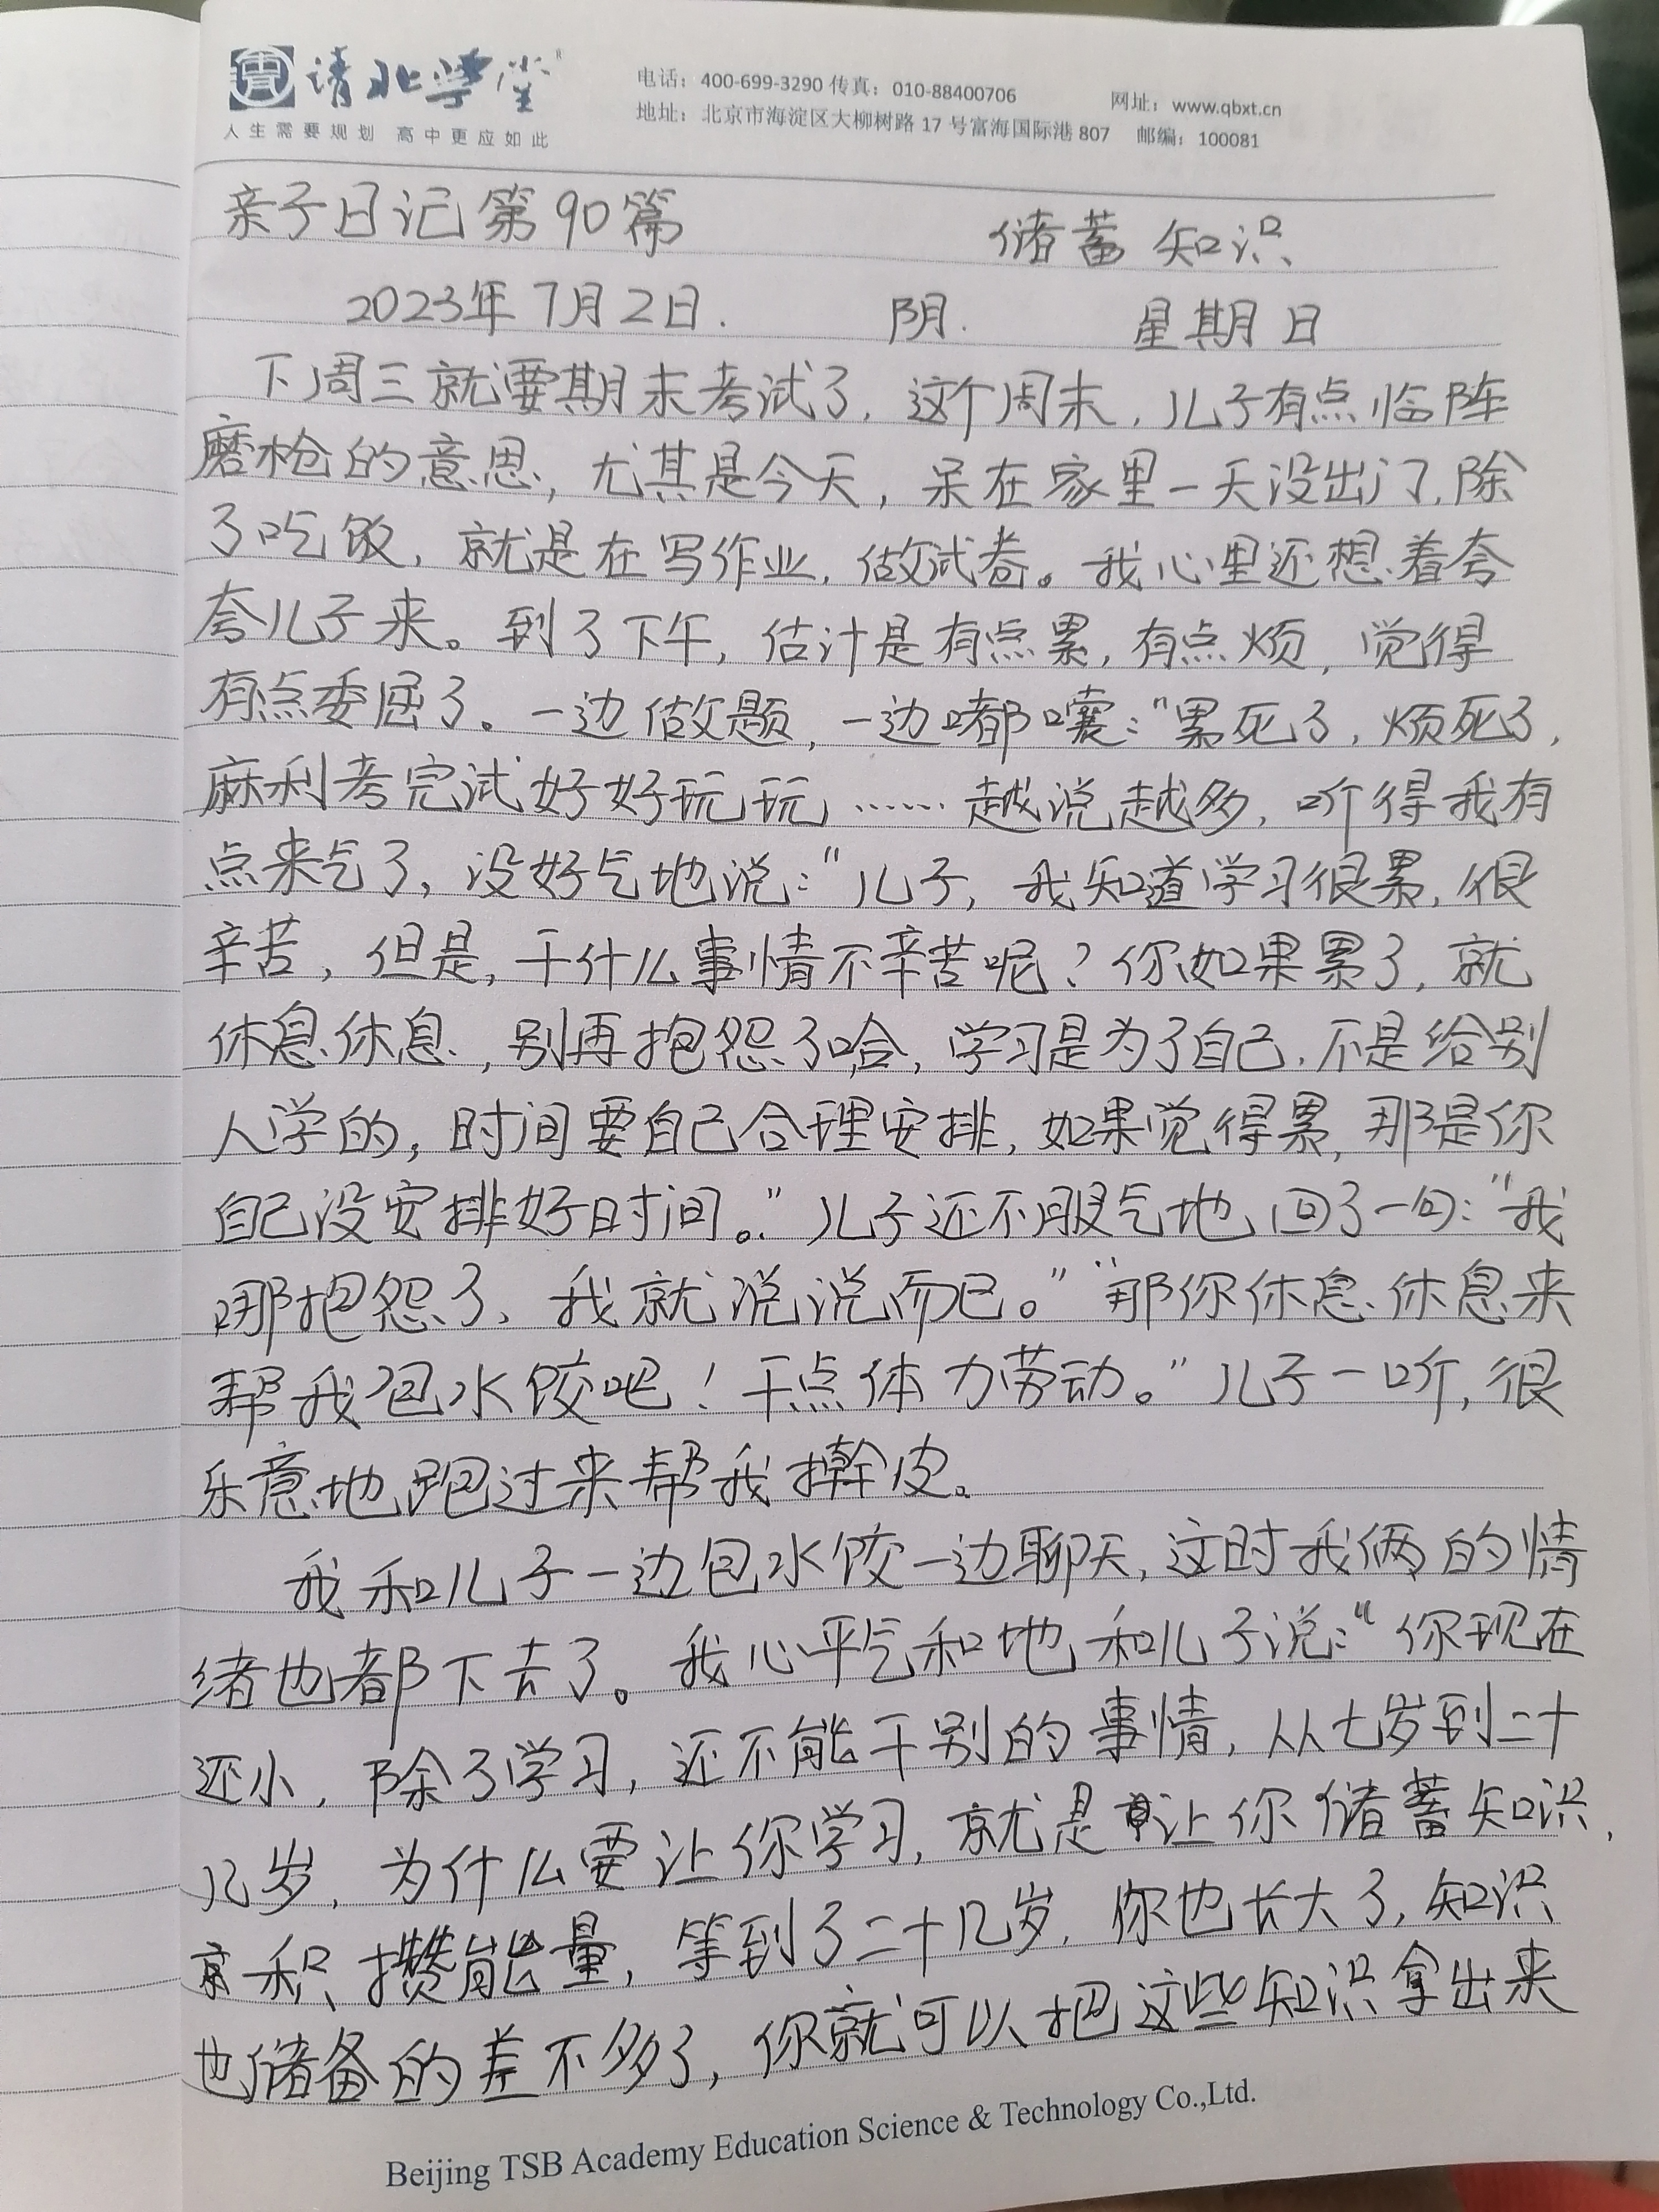 清北学堂
人生需要规划 高中更应如此
电话：400-699-3290 传真：010-88400706 网址：www.qbxt.cn
地址：北京市海淀区大柳树路 17 号富海国际港 807 邮编：100081
亲子日记第90篇 储蓄知识
2023年7月2日. 阴. 星期日
下周三就要期末考试了，这个周末，儿子有点临阵
磨枪的意思，尤其是今天，呆在家里一天没出门，除
了吃饭，就是在写作业，做试卷。我心里还想着夸
夸儿子来。到了下午，估计是有点累，有点烦，觉得
有点委屈了。一边做题，一边嘟囔：“累死了，烦死了，
麻利考完试好好玩玩，……越说越多，听得我有
点来气了，没好气地说：“儿子，我知道学习很累，很
辛苦，但是，干什么事情不辛苦呢？你如果累了，就
休息休息，别再抱怨了哈，学习是为了自己，不是给别
人学的，时间要自己合理安排，如果觉得累，那是你
自己没安排好时间。”儿子还不服气地回了一句：“我
哪抱怨了，我就说说而已。”“那你休息休息来
帮我包水饺吧！干点体力劳动。”儿子一听，很
乐意地跑过来帮我擀皮。
我和儿子一边包水饺一边聊天，这时我俩的情
绪也都下去了。我心平气和地和儿子说：“你现在
还小，除了学习，还不能干别的事情，从七岁到二十
几岁，为什么要让你学习，就是让你储蓄知识，
积攒能量，等到了二十几岁，你也长大了，知识
也储备的差不多了，你就可以把这些知识拿出来
Beijing TSB Academy Education Science & Technology Co.,Ltd.